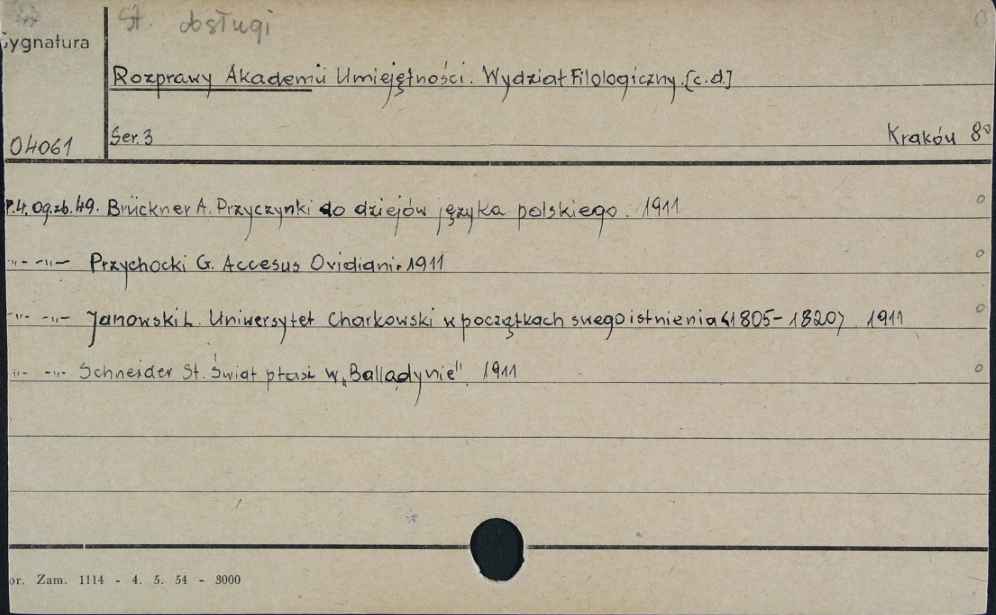 St. obsługi
Sygnatura
Rozprawy Akademii Umiejętności. Wydział Filologiczny. [c.d.]
04061
Ser. 3
Kraków 8°
T.4. og.zb. 49. Brückner A. Przyczynki do dziejów języka polskiego. 1911
-"- -"- Przychocki G. Accesus Ovidiani. 1911
-"- -"- Janowski L. Uniwersytet Charkowski w początkach swego istnienia <1805-1820> 1911
-"- -"- Schneider St. Świat ptasi w „Balladynie". 1911
or. Zam. 1114 - 4. 5. 54 - 3000